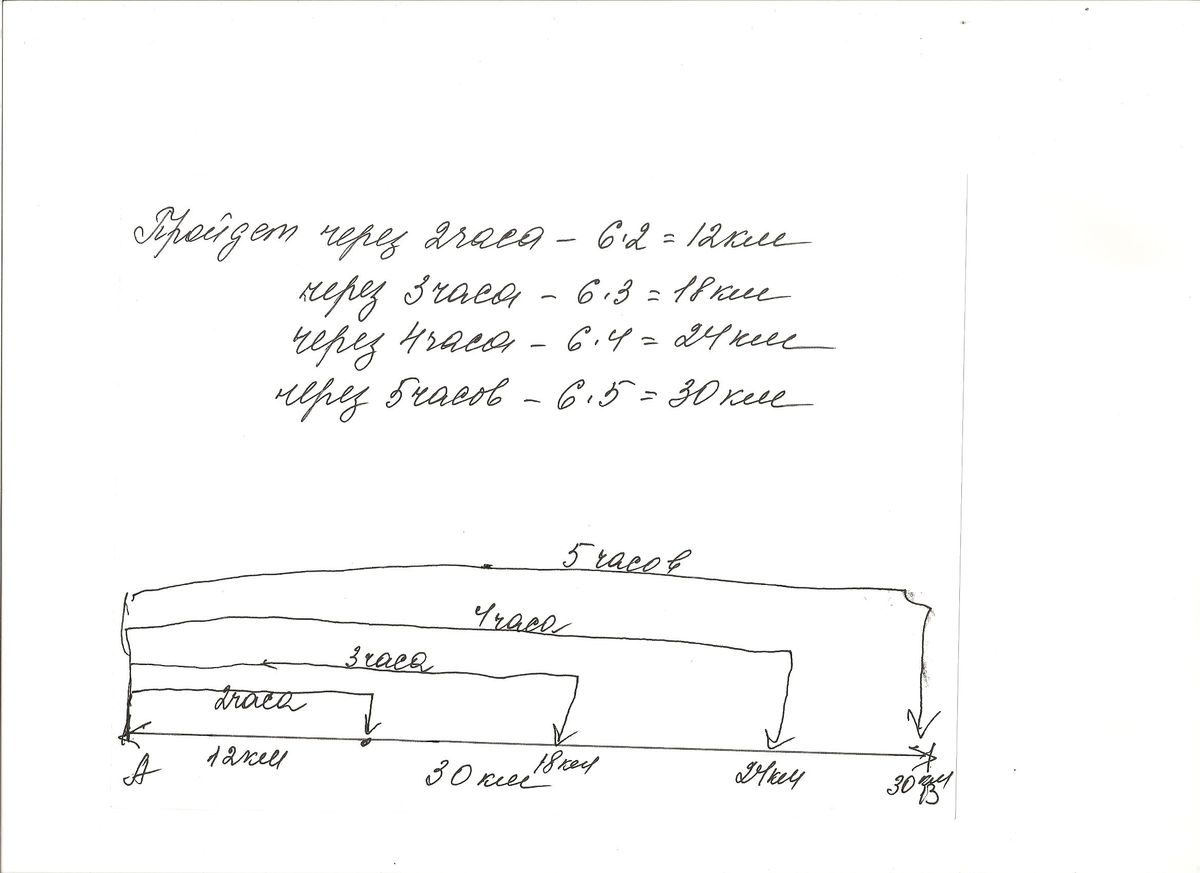 Пройдет через 2 часа – 6·2 = 12 км
через 3 часа – 6·3 = 18 км
через 4 часа – 6·4 = 24 км
через 5 часов – 6·5 = 30 км
5 часов
4 часа
3 часа
2 часа
12 км
30 км
18 км
24 км
30 км
А
В